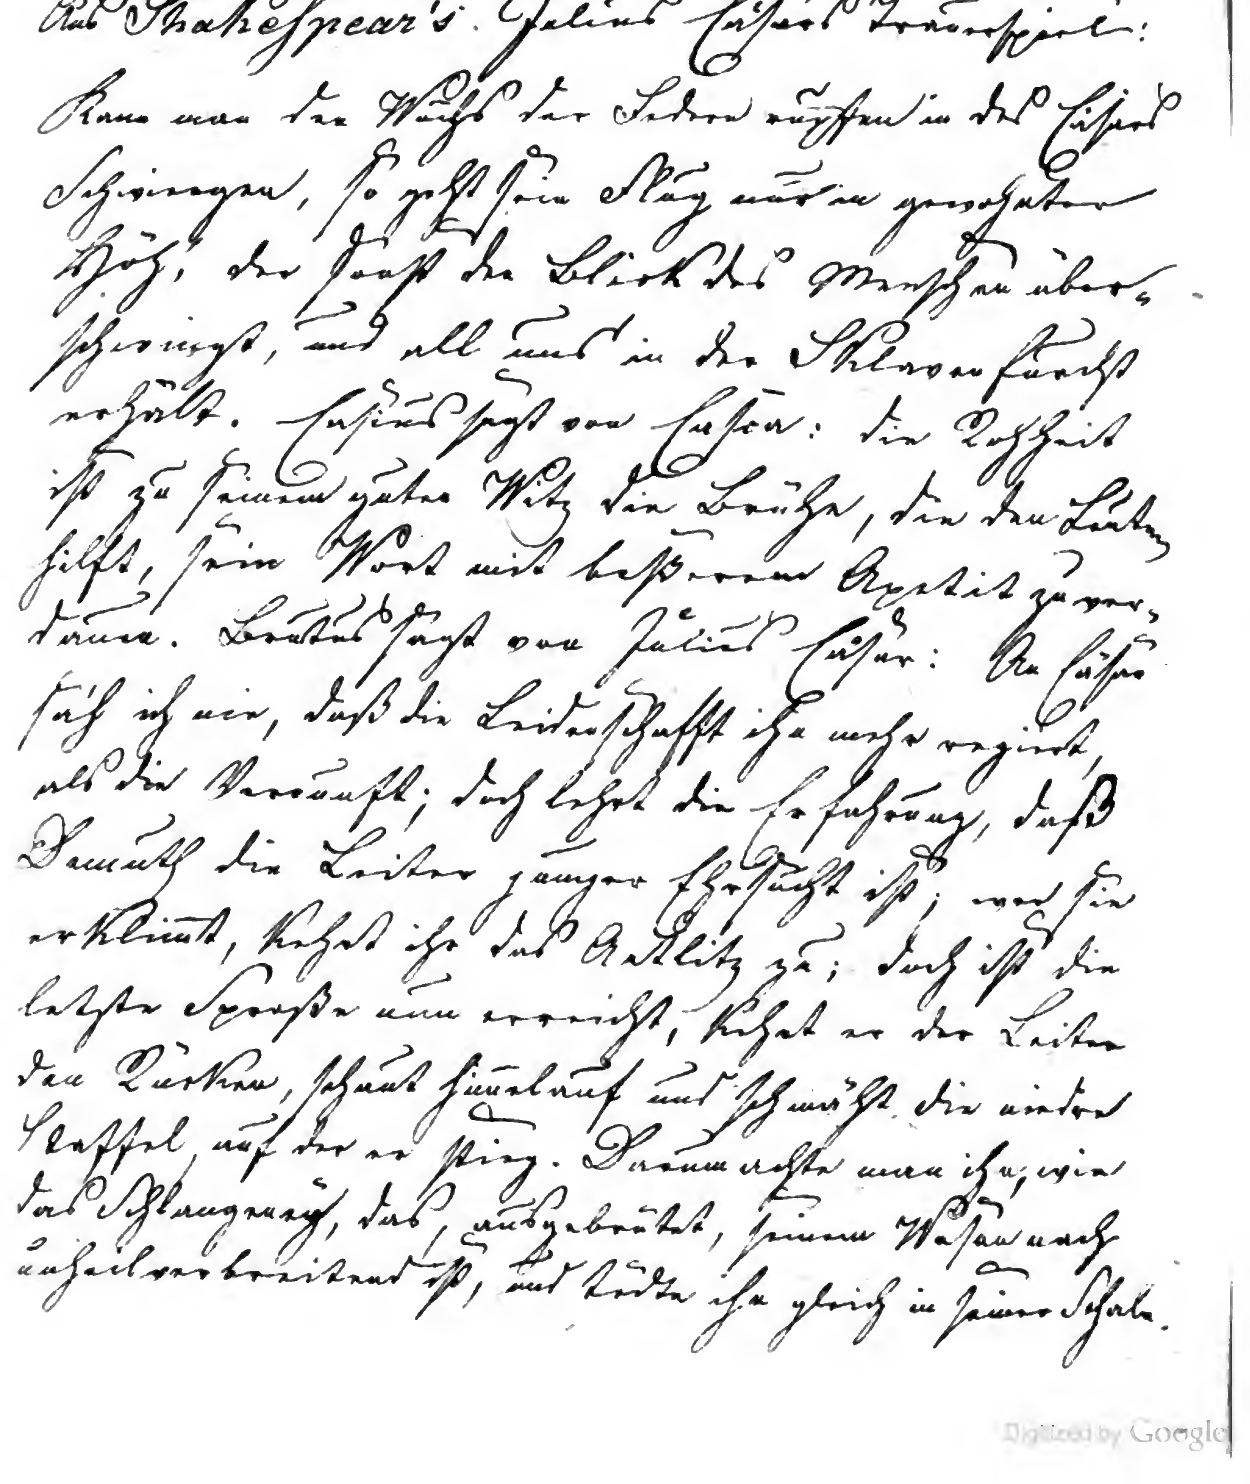 Aus Shakespear's. Julius Cäsars Trauerspiel:
Kann man den Wuchs der Federn rupffen in des Cäsars
Schwingen, so geht sein Flug nur in gewohnter
Höh', der sonst den Blick des Menschen über-
schwingt, und all uns in der Sklaven furcht
erhält. Casius sagt von Casca: die Rohheit
ist zu seinem guten Witz die Brühe, die den Leuten
hilft, sein Wort mit beßerem Apetit zu ver-
dauen. Brutus sagt von Julius Cäsar: An Cäsar
sah ich nie, daß die Leidenschafft ihn mehr regiert,
als die Vernunft; doch lehrt die Erfahrung, daß
Demuth die Leiter junger Ehrsucht ist; wer sie
erklimmt, kehrt ihr das Antlitz zu; doch ist die
letzte Sproße nun erreicht, kehrt er der Leiter
den Rücken, schaut himmelauf und schmäht die niedre
Staffel, auf der er stieg. Darum achte man ihn, wie
das Schlangeney, das, ausgebrütet, seinem Wesen nach
unheilverbreitend ist, und tödte ihn gleich in seiner Schale.
Digitized by Google